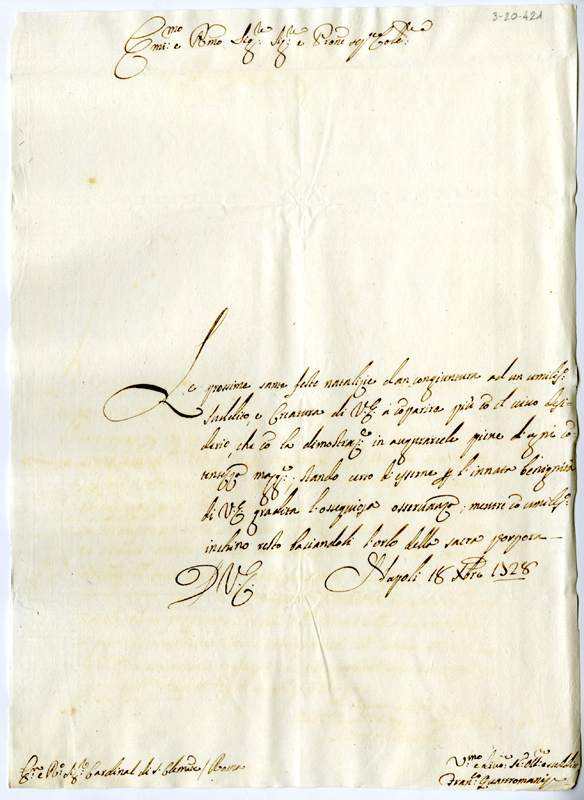 3-20-421
Em:mo e Rmo Sig:re Sig:re e Prone
Le prossime sante feste natalizie dan congiuntura ad un umiliss:o
suddito, e Creatura di V.E. a cōparire più cō il vivo desi-
derio, che cō la dimostraz:e in augurarcele piene d'ogni cō-
tentezza magg:re, stando certo d'esserne p l'innata benignità
di V.E. gradita l'ossequiosa osservanza, mentre cō umiliss:o
inchino resto baciandoli l'orlo della sacra porpora
D V.E. Napoli 18 Xbre 1728
Em:mo e Ro: Sig:re Cardinal di S. Clemente / Roma
V:mo Se:re Obl:mo e suddito
Fran:co Quattromani